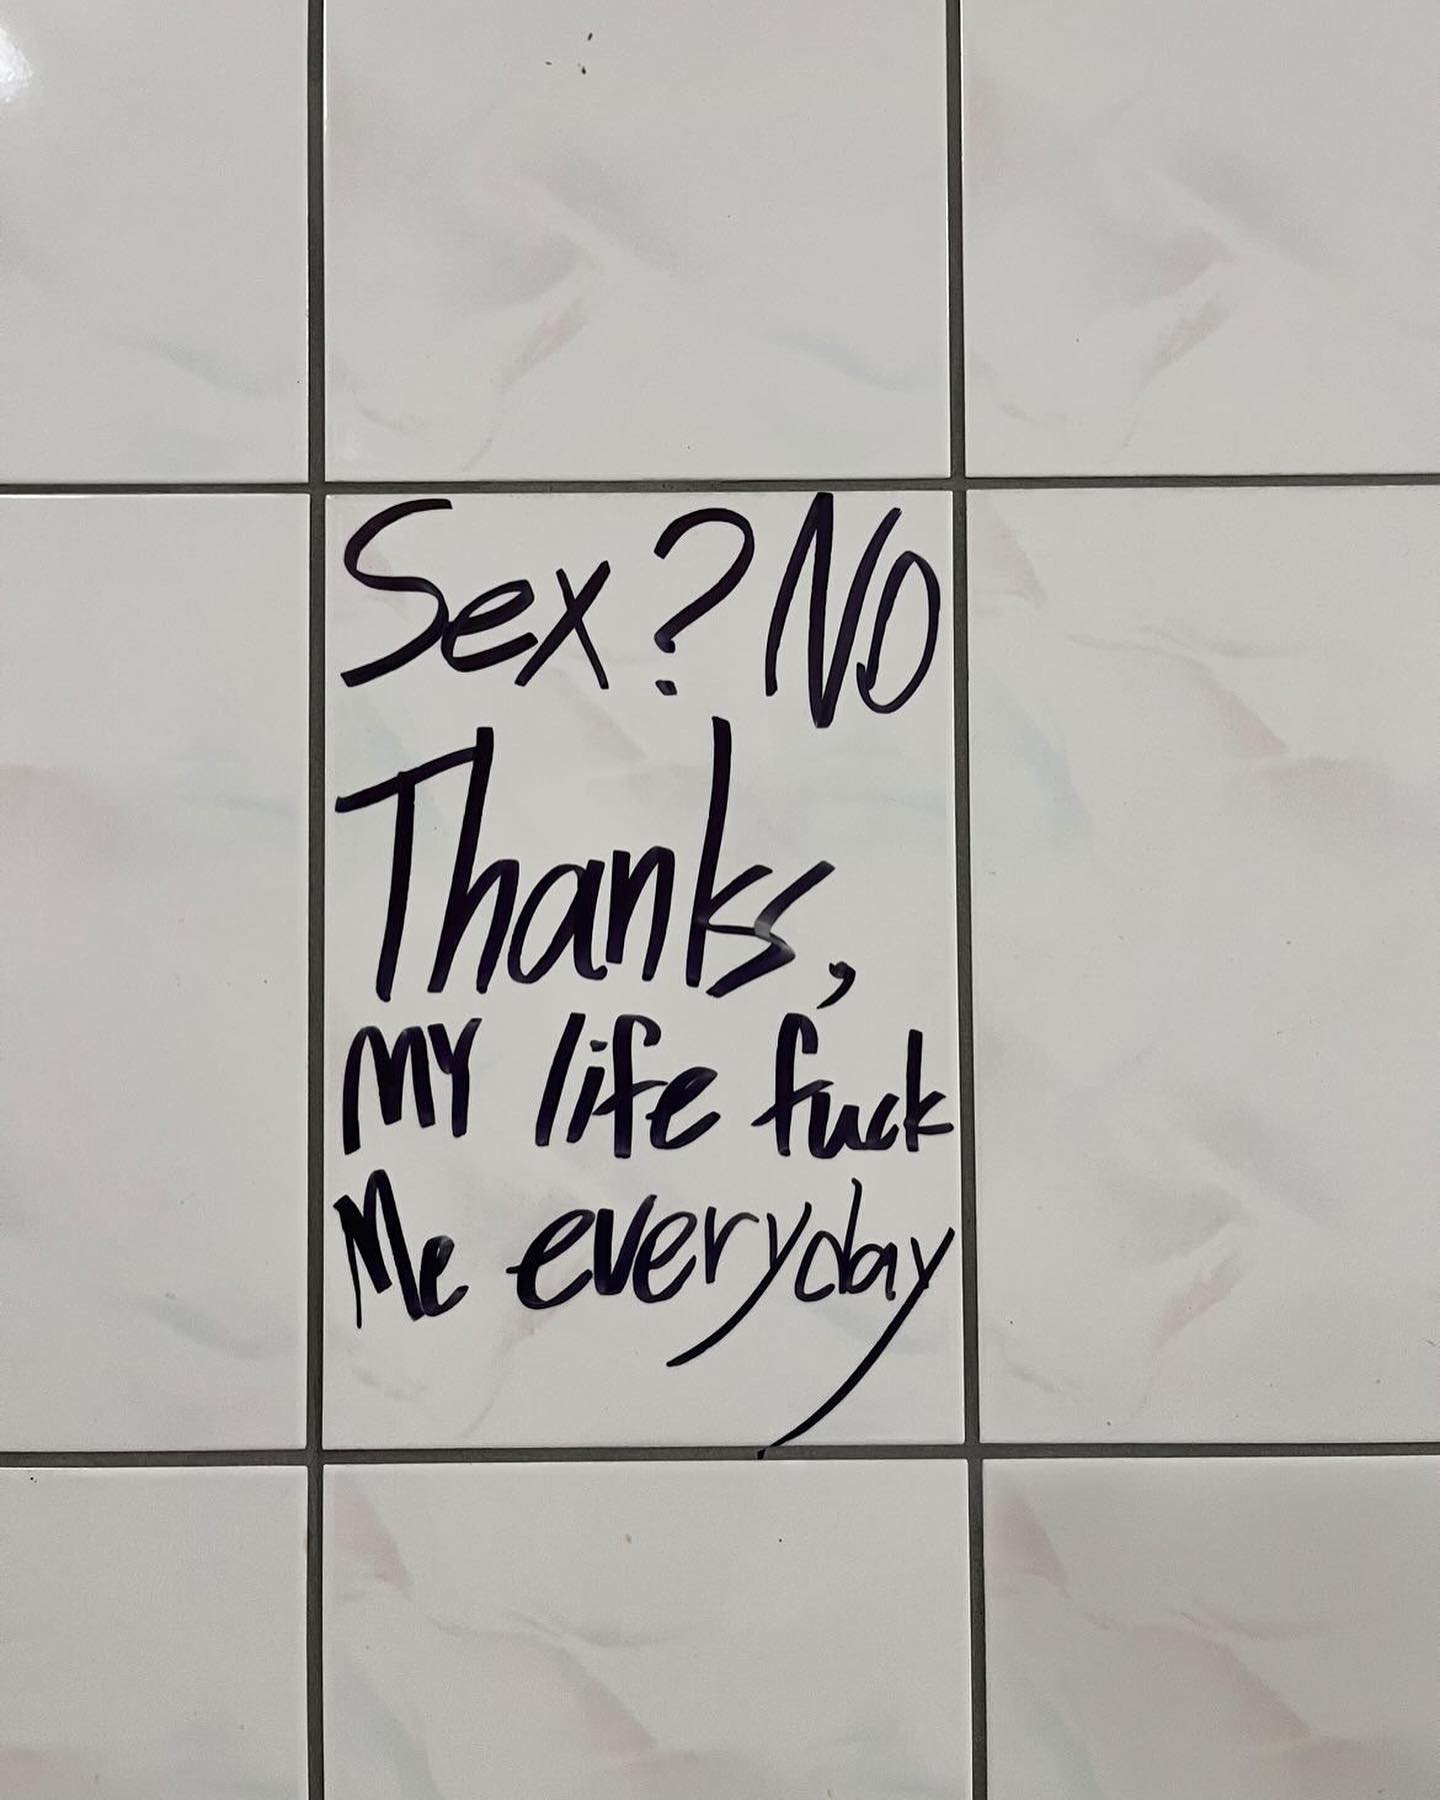 Sex? NO
Thanks,
MY life fuck
Me everyday